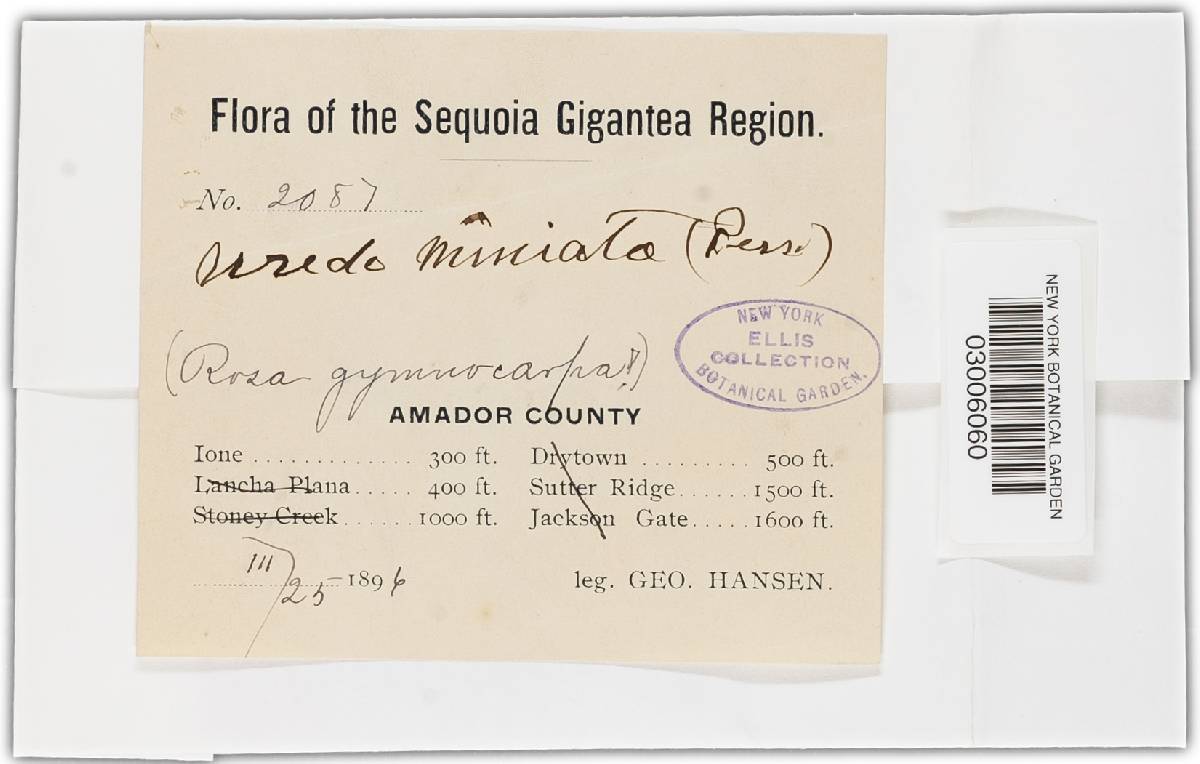 Flora of the Sequoia Gigantea Region.
No. 2087
Uredo miniata (Pers.)
(Rosa gymnocarpa!)
NEW YORK
ELLIS
COLLECTION
BOTANICAL GARDEN.
AMADOR COUNTY
Ione .............. 300 ft. Drytown .......... 500 ft.
Lancha Plana ..... 400 ft. Sutter Ridge ..... 1500 ft.
Stoney Creek ...... 1000 ft. Jackson Gate ..... 1600 ft.
III/25-1896 leg. GEO. HANSEN.
NEW YORK BOTANICAL GARDEN
03006060